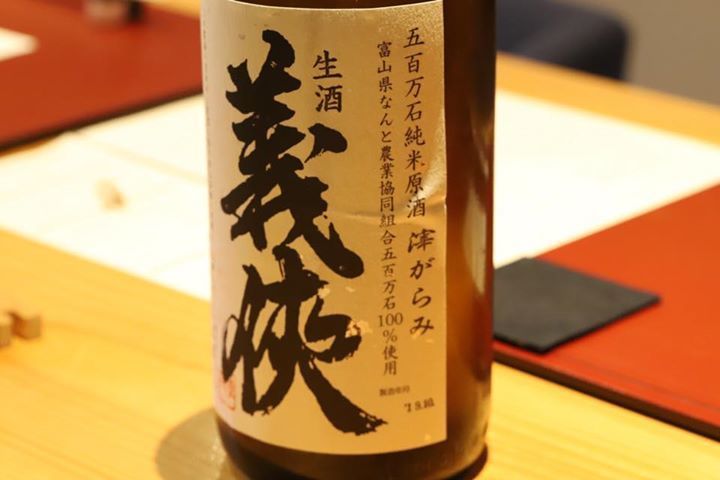 五百万石純米原酒 滓がらみ
富山県なんと農業協同組合五百万石100%使用
生酒
義侠
製造年月
'19.10.